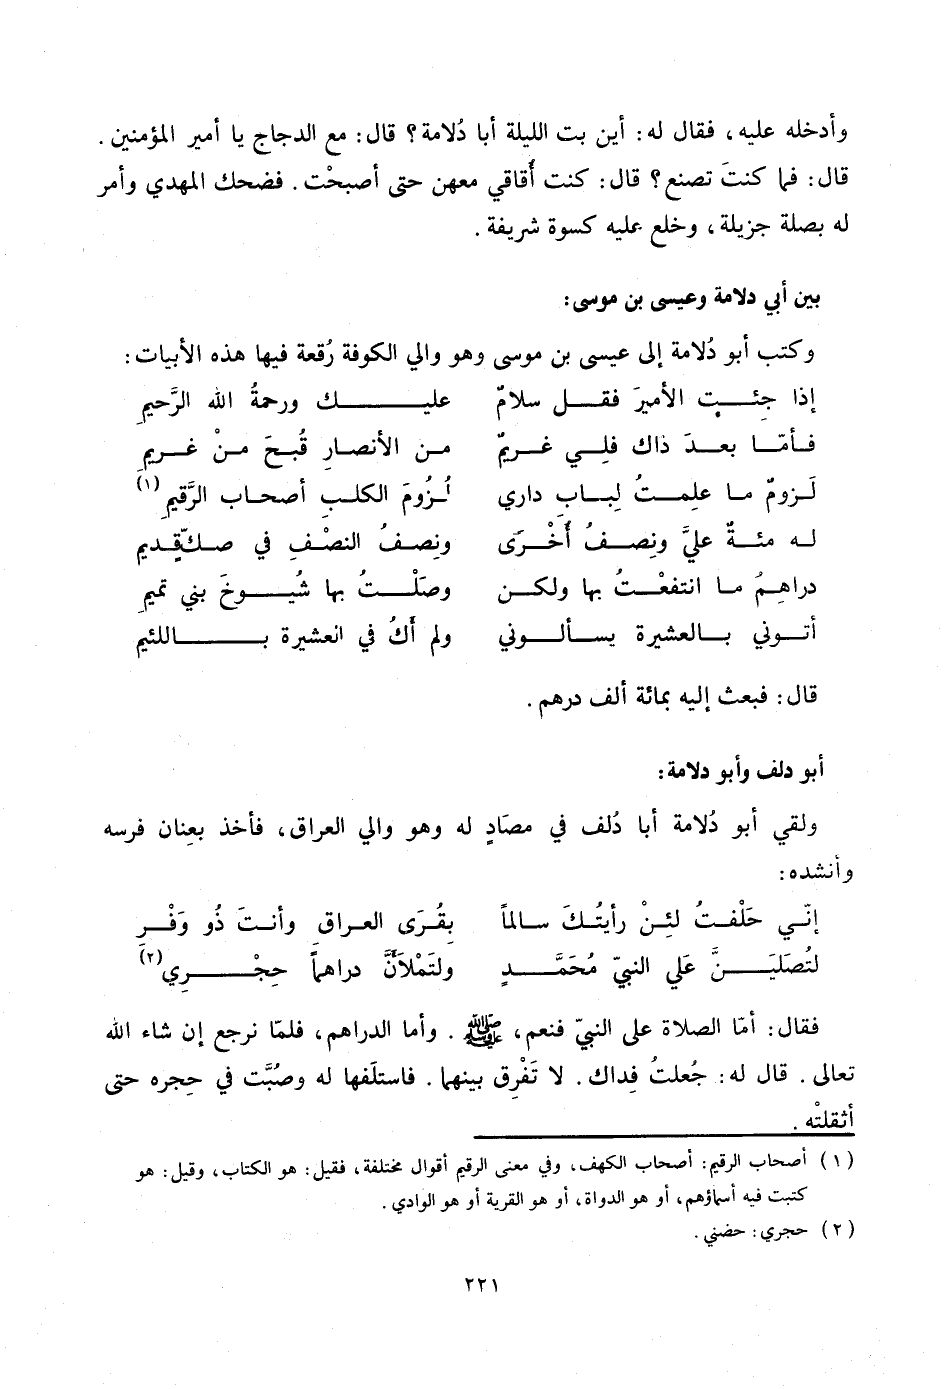 وأدخله عليه، فقال له: أين بت الليلة أبا دُلامة؟ قال: مع الدجاج يا أمير المؤمنين.
قال: فما كنتَ تصنع؟ قال: كنت أُقاقي معهن حتى أصبحْت. فضحك المهدي وأمر
له بصلة جزيلة، وخلع عليه كسوة شريفة.
بين أبي دلامة وعيسى بن موسى:
وكتب أبو دُلامة إلى عيسى بن موسى وهو والي الكوفة رُقعة فيها هذه الأبيات:
إذا جِئـت الأميرَ فقـل سلامٌ عليـــك ورحمةُ الله الرَّحيمِ
فـأمّا بعـدَ ذاك فلِـي غريمٌ مـن الأنصـارِ قُبـحَ مـنْ غـريمِ
لَـزومٌ مـا علِمـتُ لِبـابِ داري لُزُومَ الكلـبِ أصحـاب الرَّقيمِ(١)
لـه مئـةٌ عليَّ ونِصـفُ أُخْـرَى ونِصـفُ النصْـفِ في صـكّ قِـديم
دراهِـمُ مـا انتفعْـتُ بها ولكـن وصَلْـتُ بها شُيـوخَ بني تميمِ
أتـوني بـالعشيرة يسـألـوني ولم أكُ في العشيرة بــاللئيم
قال: فبعث إليه بمائة ألف درهم.
أبو دلف وأبو دلامة:
ولقي أبو دُلامة أبا دُلف في مصَادٍ له وهو والي العراق، فأخذ بعِنان فرسه
وأنشده:
إنّي حَلْفتُ لئِنْ رأيتُـكَ سـالماً بقُـرَى العـراق وأنـتَ ذُو وَفْـرِ
لتُصَليَـنَّ عَلي النبيّ مُحَمَّـدٍ ولتَمْلأَنَّ دراهماً حِجْـري(٢)
فقال: أمّا الصلاة على النبيّ فنعم، ﷺ. وأما الدراهم، فلمّا نرجع إن شاء الله
تعالى. قال له: جُعلتُ فِداك. لا تَفْرِق بينهما. فاستلَفها له وصُبَّت في حِجره حتى
أثقلتْه.
(١) أصحاب الرقيم: أصحاب الكهف، وفي معنى الرقيم أقوال مختلفة، فقيل: هو الكتاب، وقيل: هو
كتبت فيه أسماؤهم، أو هو الدواة، أو هو القرية أو هو الوادي.
(٢) حجري: حضني.
٢٢١